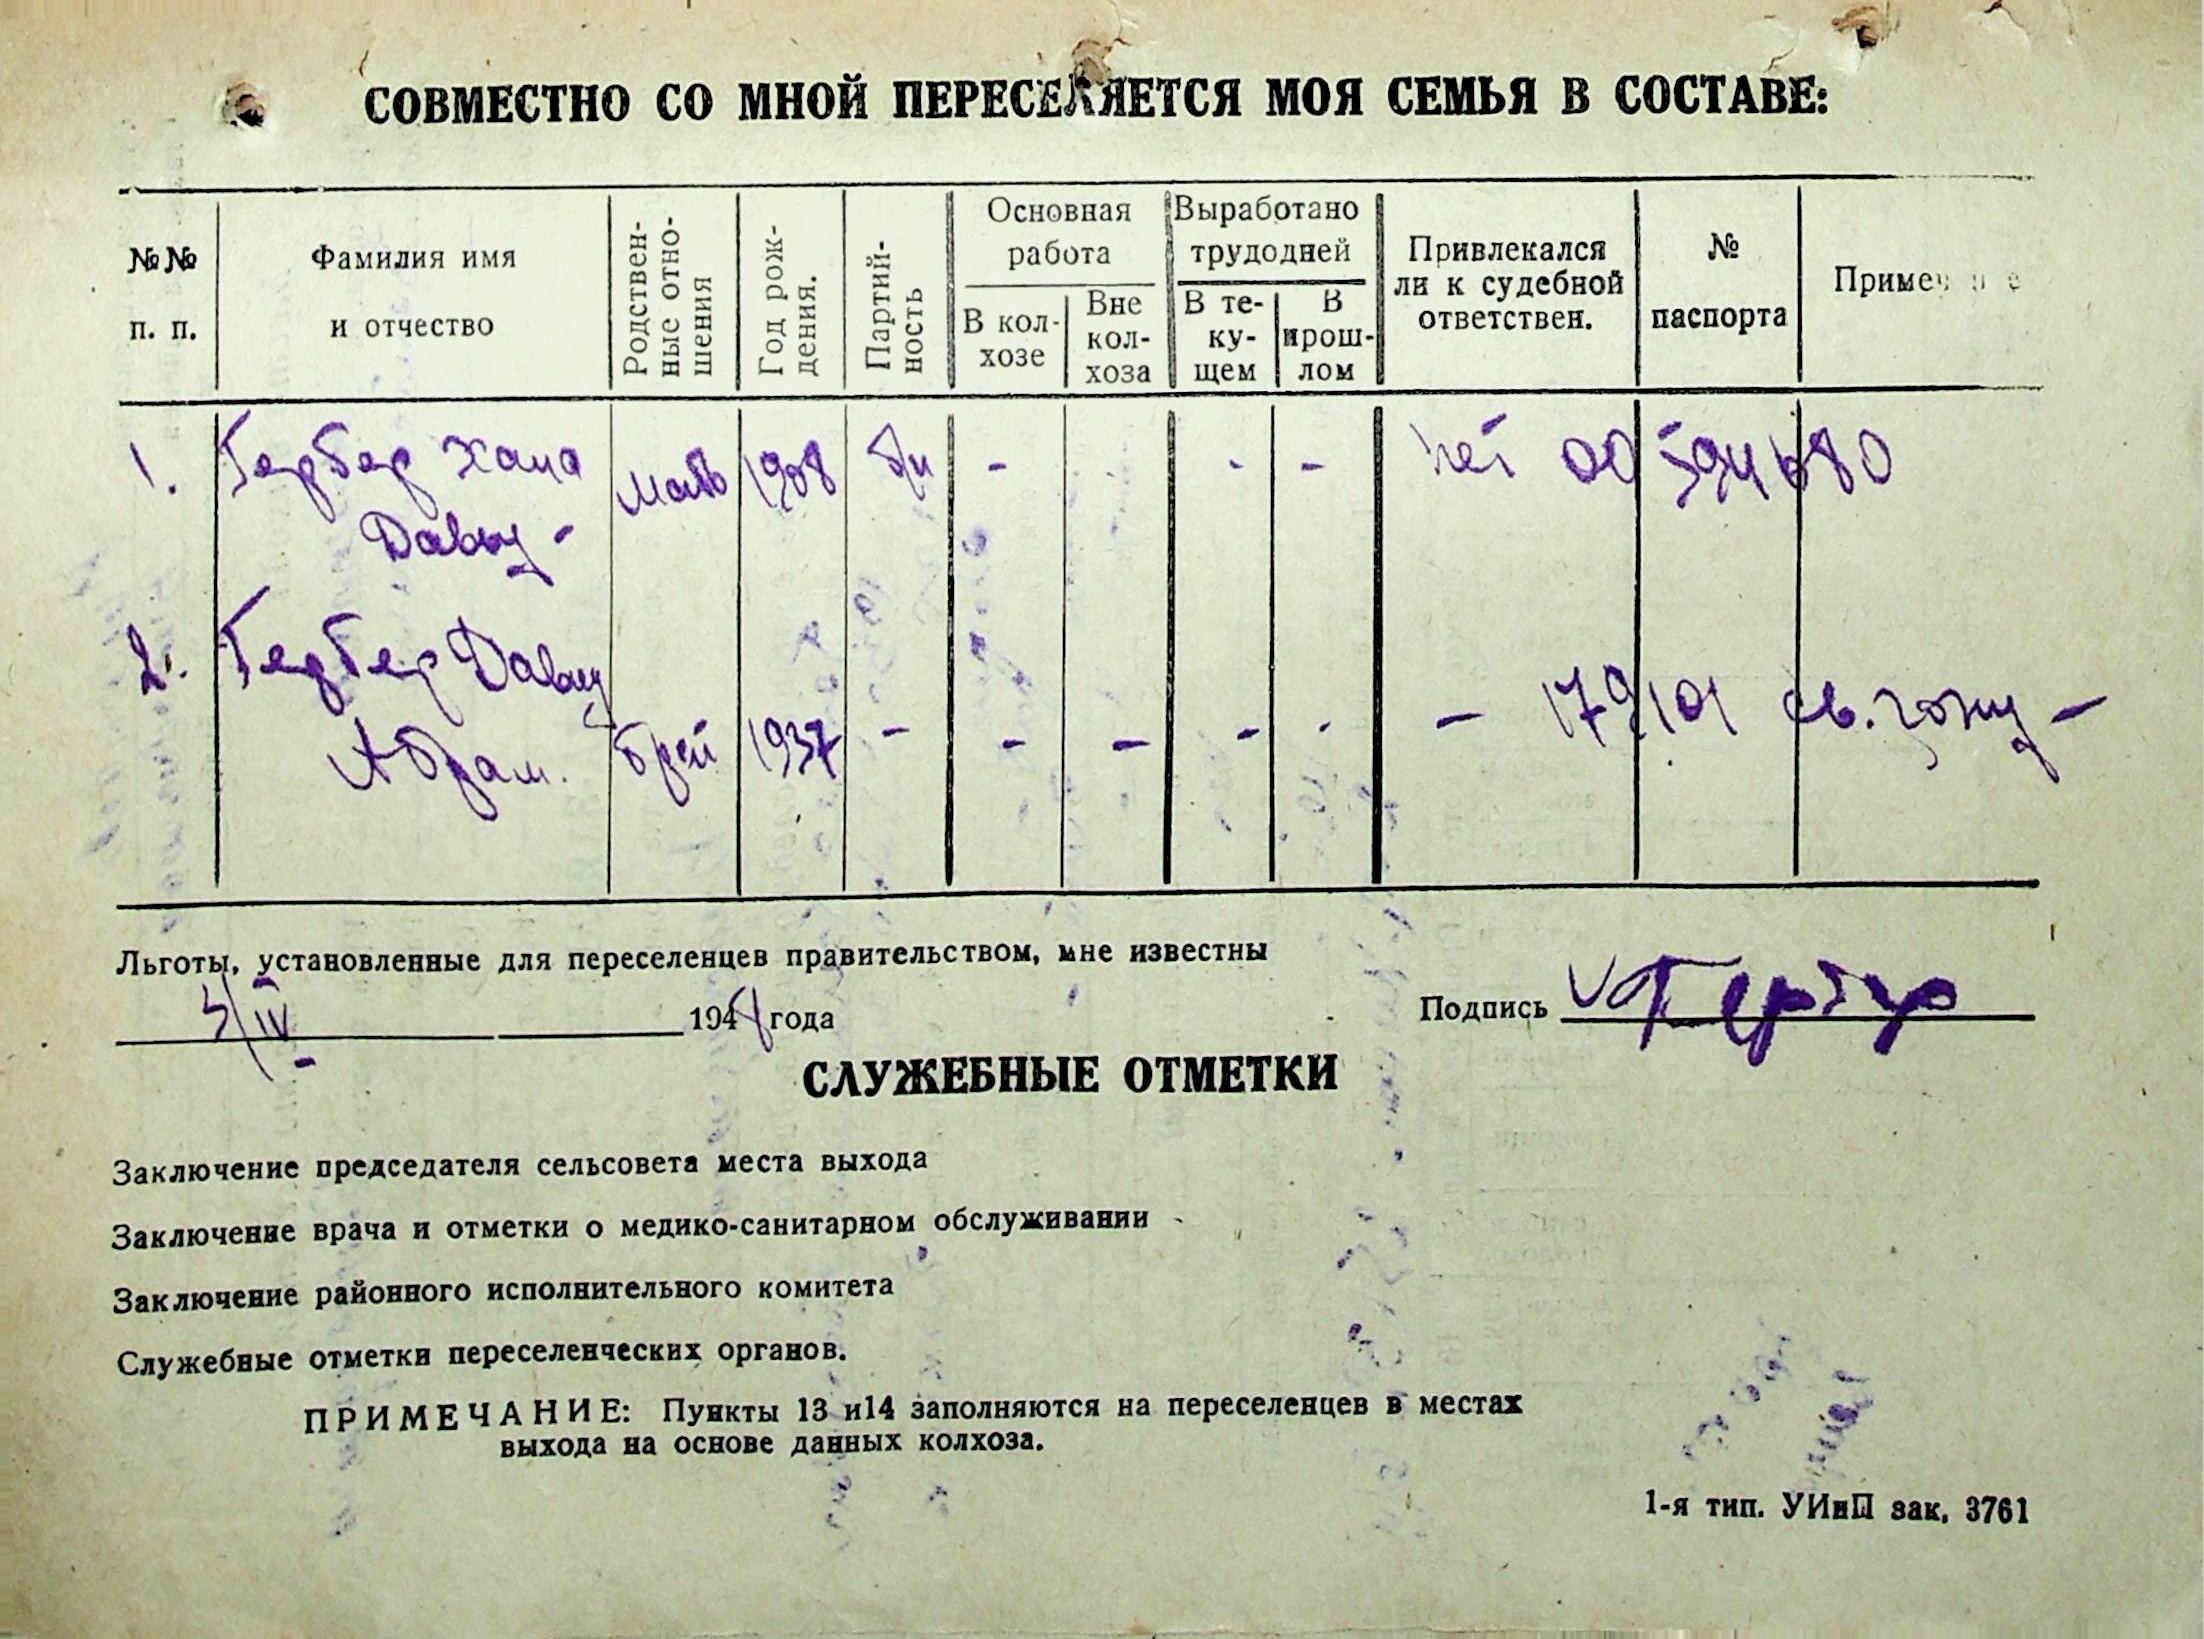 СОВМЕСТНО СО МНОЙ ПЕРЕСЕЛЯЕТСЯ МОЯ СЕМЬЯ В СОСТАВЕ:
№№ п. п.
Фамилия имя и отчество
Родствен-
ные отно-
шения
Год рож-
дения.
Партий-
ность
Основная
работа
В кол-
хозе
Вне
кол-
хоза
Выработано
трудодней
В те-
ку-
щем
В
прош-
лом
Привлекался
ли к судебной
ответствен.
№
паспорта
1. Гербер Хана мать 1908 бп - - - нет 00 594680
Давид -
2. Гербер Давид
Абрам. брат 1937 - - - - - - 179101
Льготы, установленные для переселенцев правительством, мне известны
3/IV 1948 года
Подпись Гербер
СЛУЖЕБНЫЕ ОТМЕТКИ
Заключение председателя сельсовета места выхода
Заключение врача и отметки о медико-санитарном обслуживании
Заключение районного исполнительного комитета
Служебные отметки переселенческих органов.
ПРИМЕЧАНИЕ: Пункты 13 и14 заполняются на переселенцев в местах
выхода на основе данных колхоза.
1-я тип. УИиП зак, 3761